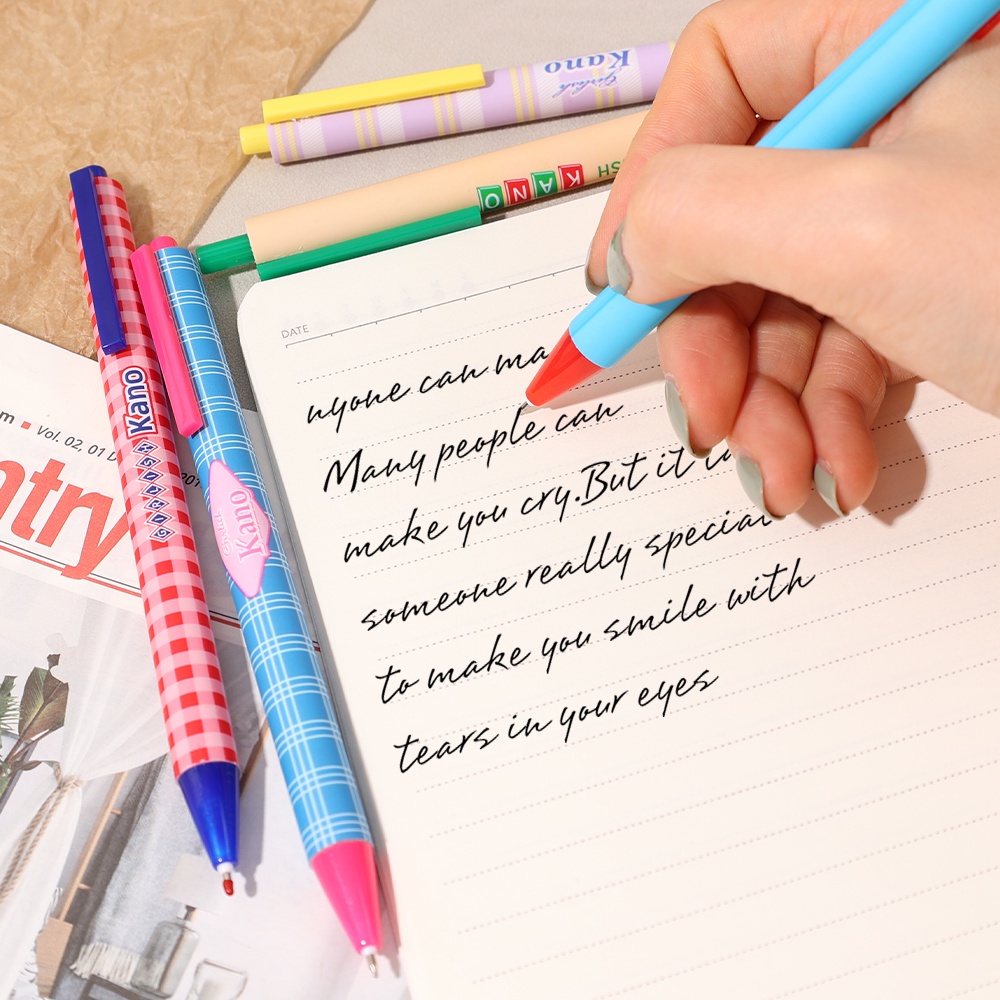 Kano
Girlish
KANO
SH
DATE
nyone can ma
Many people can
make you cry.But it
someone really special
to make you smile with
tears in your eyes
Kano
GIRLISH
Kano
Girlish
m Vol. 02, 01 D
ntry